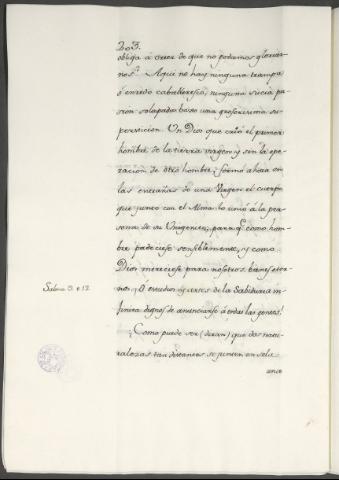 203.
obliga á creer de que no podamos gloriar-
nos? Aqui no hay ninguna trampa
ó enredo caballeresco; ninguna sucia pa-
sion solapada baxo una groserisima su-
persticion. Un Dios que crió el primer
hombre de la tierra virgen y sin la ope-
racion de otro hombre, formó ahora en
las entrañas de una Virgen el cuerpo
que junto con el Alma lo unió á la per-
sona de su Unigenito, para qe como hom-
bre padeciese sensiblemente, y como
Dios mereciese para nosotros bienes eter-
nos. ¡O estudios y artes de la Sabiduria in-
finita dignos de anunciarse á todas las gentes!
¿Como puede ser (diran) que dos natu-
ralezas tan distantes se junten en sola
una